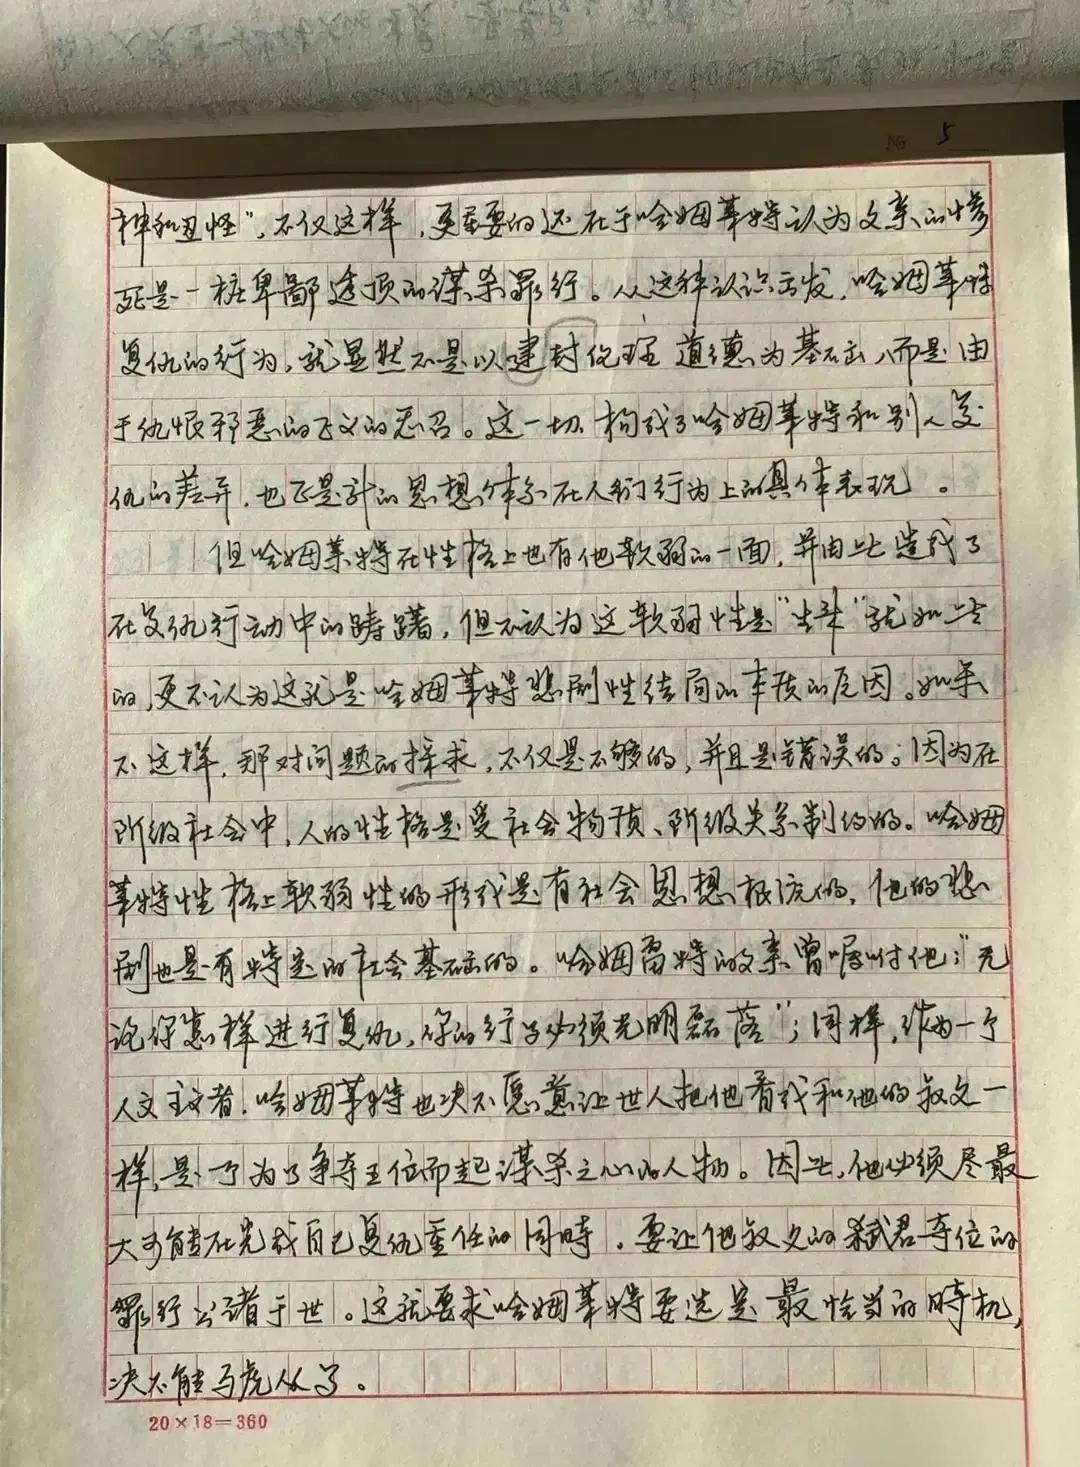 № 5
神和丑怪”,不仅这样,更重要的还在于哈姆莱特认为父亲的惨
死是一桩卑鄙透顶的谋杀罪行。从这种认识出发,哈姆莱特
复仇的行为,就显然不是以建封伦理道德为基础,而是由
于仇恨邪恶的正义的感召。这一切构成了哈姆莱特和别人复
仇的差异,也正是新的思想体系在人们行为上的具体表现。
但哈姆莱特在性格上也有他软弱的一面,并由此造成了
在复仇行动中的踌躇,但不认为这软弱性是“生来”就如此
的,更不认为这就是哈姆莱特悲剧性结局的本质的原因。如果
不这样,那对问题的探求,不仅是不够的,并且是错误的;因为在
阶级社会中,人的性格是受社会物质、阶级关系制约的。哈姆
莱特性格上软弱性的形成是有社会思想根源的,他的悲
剧也是有特定的社会基础的。哈姆雷特的父亲曾嘱咐他:“无
论你怎样进行复仇,你的行为必须光明磊落”;同样,作为一个
人文主义者,哈姆莱特也决不愿意让世人把他看成和他的叔父一
样,是个为了争夺王位而起谋杀之心的人物。因此,他必须尽最
大可能在完成自己复仇重任的同时,要让他叔父的弑君夺位的
罪行公诸于世。这就要求哈姆莱特要选定最恰当的时机,
决不能马虎从事。
20×18=360